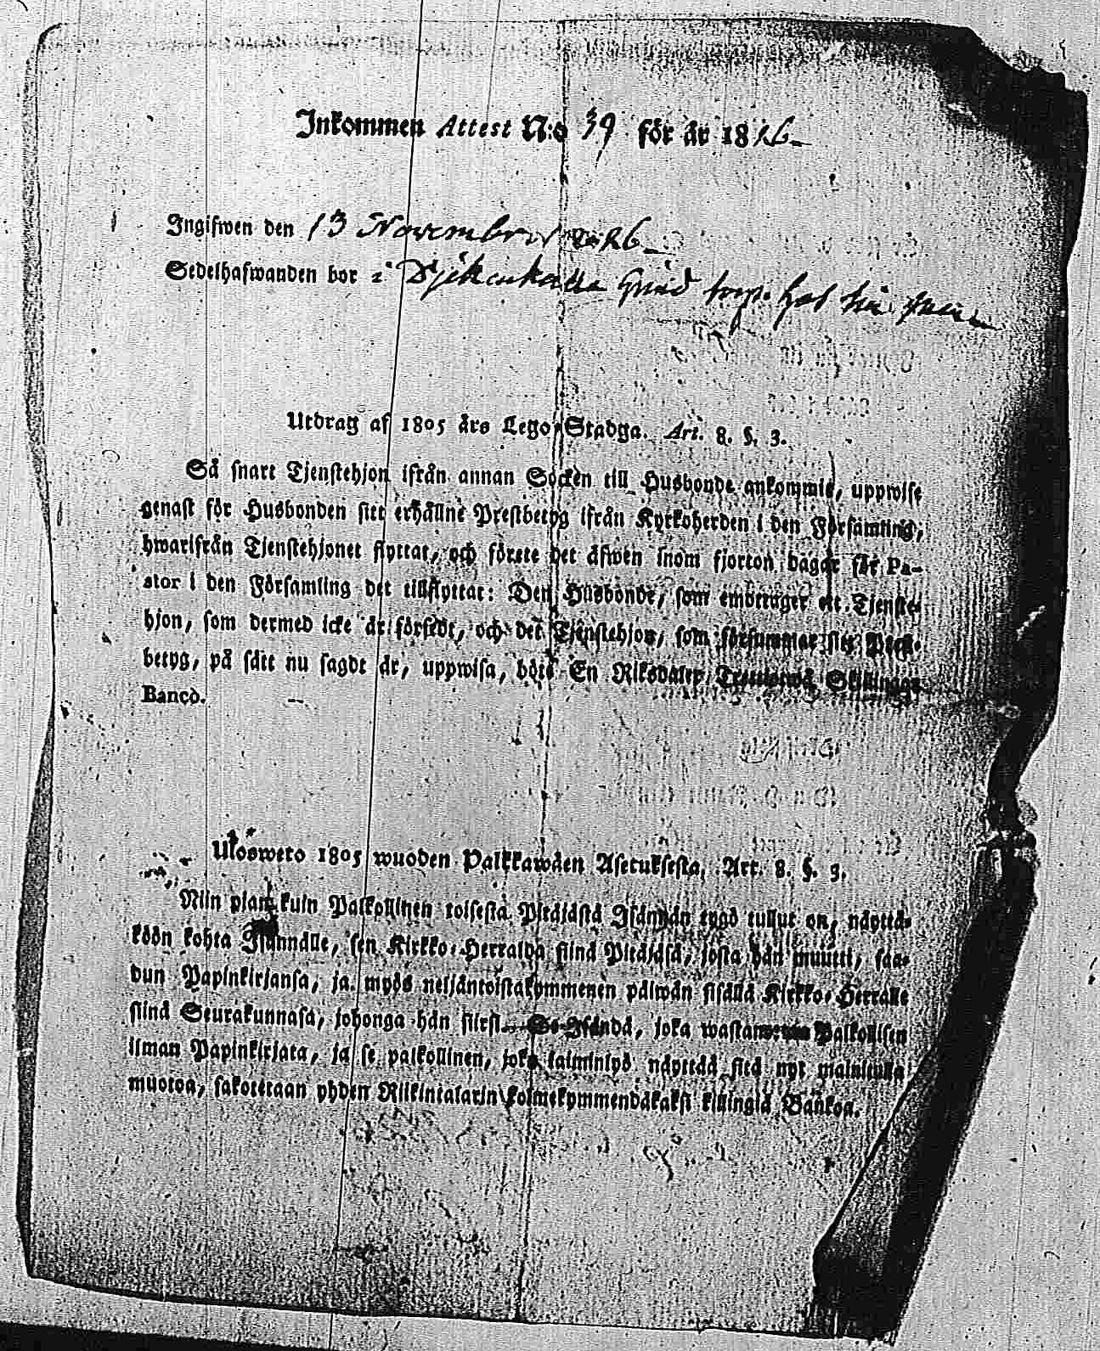 Inkommen Attest N:o 39 för år 1826
Ingifwen den 13 November 1826
Sedelhafwanden bor i
Utdrag af 1805 års Lego-Stadga. Art. 8. §. 3.
Så snart Tjenstehjon ifrån annan Socken till Husbonde ankommit, uppwise
genast för Husbonden sitt erhållne Prestbetyg ifrån Kyrkoherden i den Församling,
hwarifrån Tjenstehjonet flyttat, och förete det äfwen inom fjorton dagar för Pa-
stor i den Församling det tillflyttat: Den Husbonde, som emottager ett Tjenste-
hjon, som dermed icke är försedt, och det Tjenstehjon, som försummar sitt Prest-
betyg, på sätt nu sagdt är, uppwisa, böte En Riksdaler Trettiotwå Skillingar
Banco.
Ulosweto 1805 wuoden Palkkawäen Asetuksesta, Art. 8. §. 3.
Niin pian kuin Palkollinen toisesta Pitäjästä Isännän tygö tullut on, näyttä-
köön kohta Isännälle, sen Kirkko-Herralda siinä Pitäjäsä, josta hän muutti, saa-
dun Papinkirjansa, ja myös neljäntoistakymmenen päiwän sisällä Kirkko-Herralle
siinä Seurakunnasa, johonga hän siirsi. Se Isändä, joka wastan Palkollisen
ilman Papinkirjata, ja se palkollinen, joka laiminlyö näyttää sitä nyt mainitulla
muotoa, sakotetaan yhden Riikintalarin kolmekymmendäkaksi killingiä Bankoa.